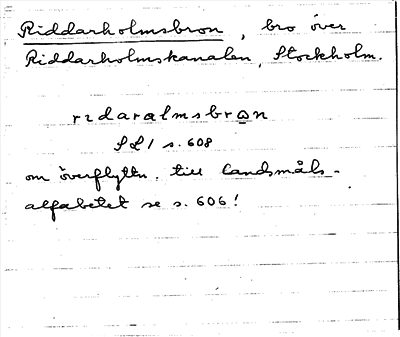 Riddarholmsbron, bro över
Riddarholmskanalen, Stockholm.
rıdaralmsbrωn
SL1 s. 608
om överflyttn. till landsmåls-
alfabetet se s. 606!